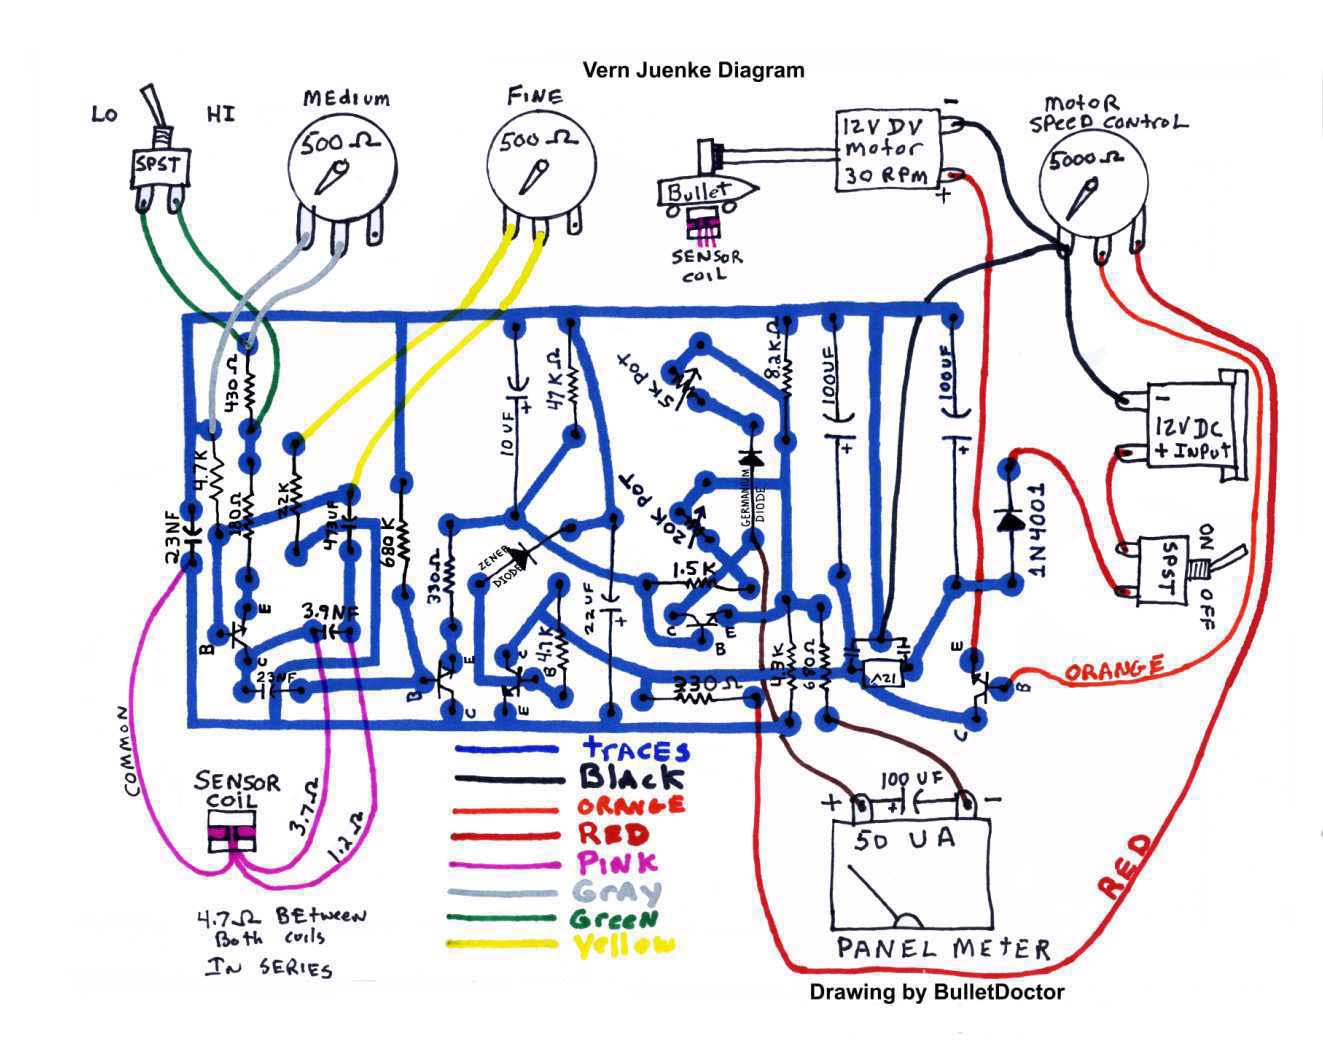 Vern Juenke Diagram
LO
HI
SPST
MEdium
500 Ω
FINE
500 Ω
12V DV
motor
30 RPM
-
+
Bullet
SENSOR
COIL
MOTOR
SPEED CONTROL
5000 Ω
430 Ω
4.7K
180Ω
23NF
22K
47UF
680K
10 UF
47KΩ
5K POT
20K POT
8.2KΩ
100UF
+
100UF
+
GERMANIUM
DIODE
ZENER
DIODE
330Ω
1.5K
22UF
+
4.7K
3.9NF
23NF
E
B
C
E
B
C
C
B
E
C
E
B
230Ω
4.3K
680Ω
V21
1N4001
-
12V DC
+ INPUT
SPST
ON
OFF
E
B
C
ORANGE
COMMON
SENSOR
COIL
3.7Ω
1.2Ω
4.7Ω BEtween
Both coils
IN SERIES
trACES
BlACK
ORANGE
RED
PINK
GrAY
GreeN
Yellow
+
100 UF
+
-
50 UA
PANEL METER
RED
Drawing by BulletDoctor